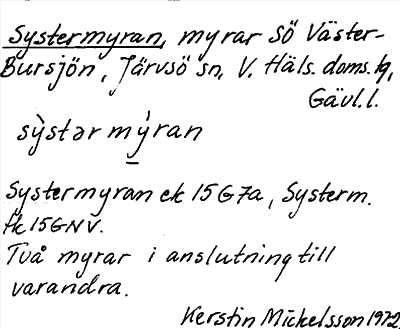 Systermyran, myrar SÖ Väster-
Bursjön, Järvsö sn, V. Häls. doms. hg,
Gävl. l.
sỳstər mýran
Systermyran ek 15G7a, Systerm.
fk 15GNV.
Två myrar i anslutning till
varandra.
Kerstin Mickelsson 1972.